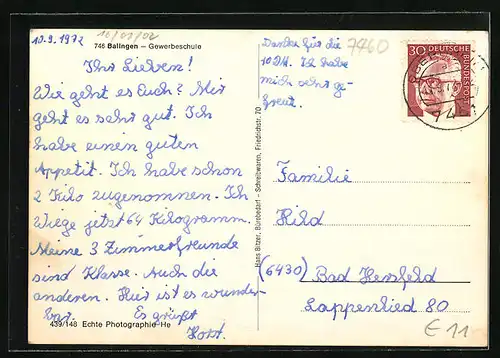 16/01/02
10.9.1972
746 Balingen — Gewerbeschule
Ihr Lieben!
Wie geht es Euch? Mir
geht es sehr gut. Ich
habe einen guten
Appetit. Ich habe schon
2 Kilo zugenommen. Ich
Wiege jetzt 64 Kilogramm.
Meine 3 Zimmerfreunde
sind Klasse. Auch die
anderen. Hier ist es wunder-
bar. Es grüßt
Horst.
439/148 Echte Photographie He
Hans Bitzer, Bürobedarf - Schreibwaren, Friedrichstr. 70
Danke für die
10 DM. Ich habe
mich sehr ge-
freut.
7460
30
DEUTSCHE
BUNDESPOST
Familie
Hild
(6430) Bad Hersfeld
Lappenlied 80
€ 11